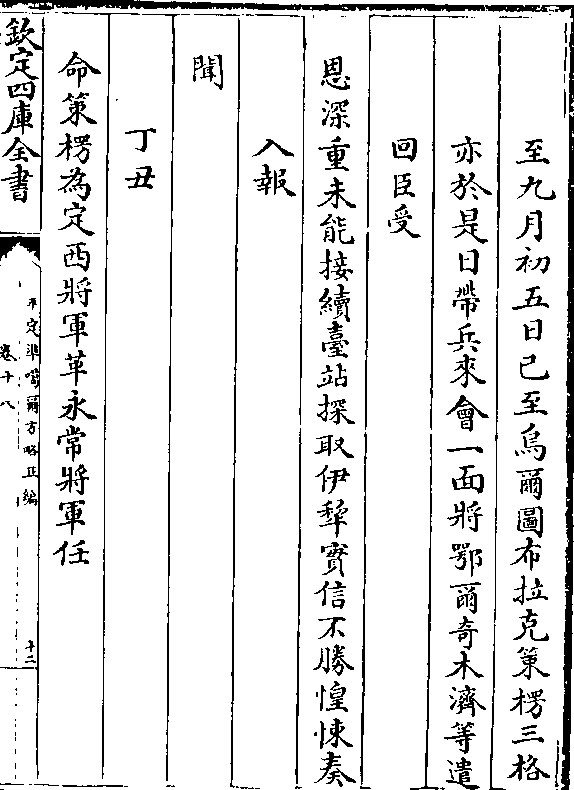 至九月初五日已至烏爾圖布拉克策楞三格
亦於是日帶兵來會一面將鄂爾奇木濟等遣
回臣受
恩深重未能接續臺站探取伊犂實信不勝惶悚奏
入報
聞
丁丑
命策楞為定西將軍革永常將軍任
欽定四庫全書
平定準噶爾方略正編
卷十八
十二